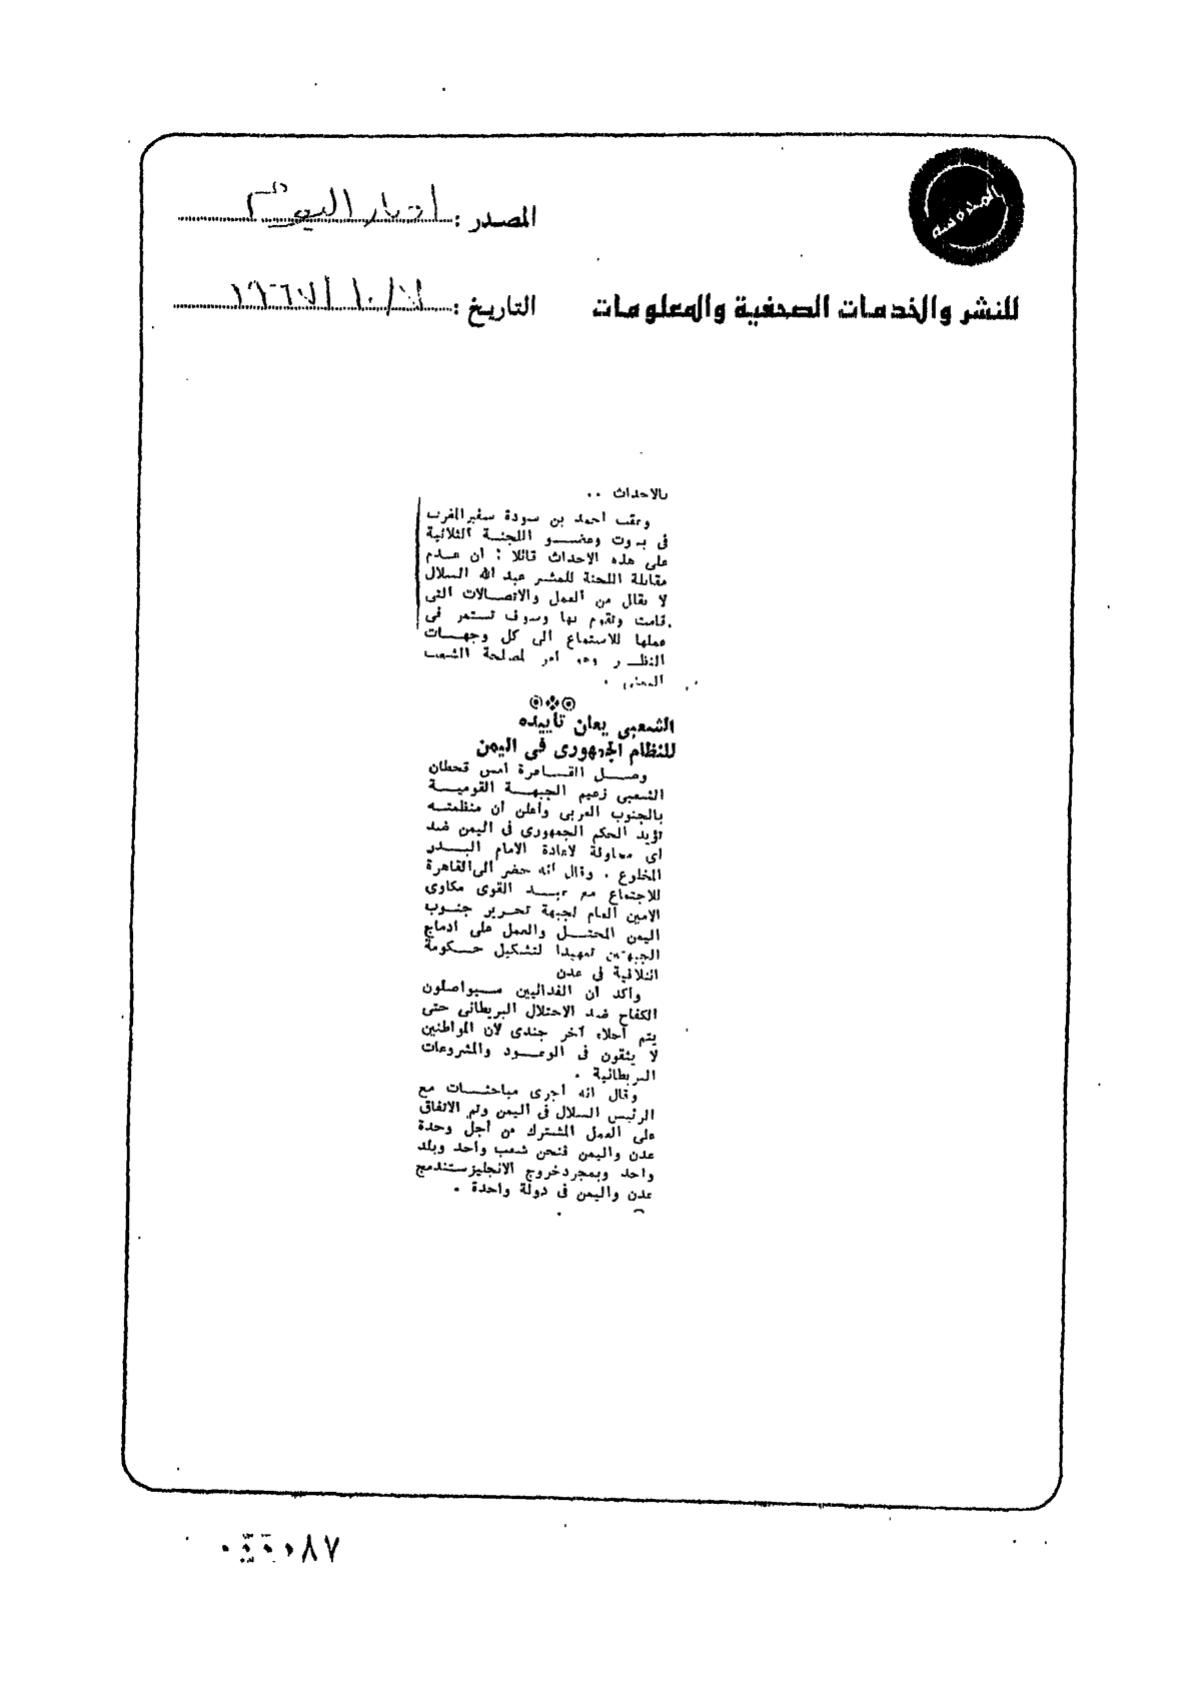 المصدر : اخبار اليوم
للنشر والخدمات الصحفية والمعلومات
التاريخ : ٧/١٠/١٩٦٧
بالاحداث ..
وعقب احمد بن سودة سفير المغرب
فى بيروت وعضو اللجنة الثلاثية
على هذه الاحداث قائلا : ان عدم
مقابلة اللجنة للمشير عبد الله السلال
لا يقلل من العمل والاتصالات التى
قامت وتقوم بها وسوف تستمر فى
عملها للاستماع الى كل وجهات
النظر وهو امر لمصلحة الشعب
اليمنى .
الشعبى يعلن تأييده
للنظام الجمهورى فى اليمن
وصل القاهرة امس قحطان
الشعبى زعيم الجبهة القومية
بالجنوب العربى وأعلن ان منظمته
تؤيد الحكم الجمهورى فى اليمن ضد
اى محاولة لاعادة الامام البدر
المخلوع . وقال انه حضر الى القاهرة
للاجتماع مع عبد القوى مكاوى
الامين العام لجبهة تحرير جنوب
اليمن المحتل والعمل على ادماج
الجبهتين تمهيدا لتشكيل حكومة
ائتلافية فى عدن
وأكد ان الفدائيين سيواصلون
الكفاح ضد الاحتلال البريطانى حتى
يتم اجلاء آخر جندى لان المواطنين
لا يثقون فى الوعود والمشروعات
البريطانية .
وقال انه أجرى مباحثات مع
الرئيس السلال فى اليمن وتم الاتفاق
على العمل المشترك من أجل وحدة
عدن واليمن فنحن شعب واحد وبلد
واحد وبمجرد خروج الانجليز ستندمج
عدن واليمن فى دولة واحدة .